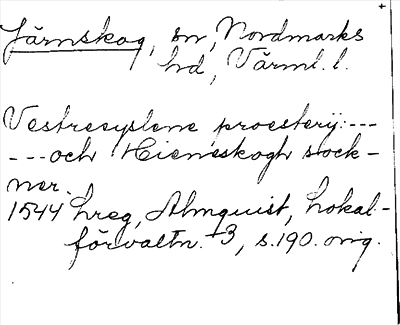 Järnskog, sn, Nordmarks
hd, Värml. l.
Vestresyslene proesterij: ---
--- och Hieneskogh sock-
ner.
1544 hreg, Almquist, Lokal-
förvaltn. 3, s. 190. orig.